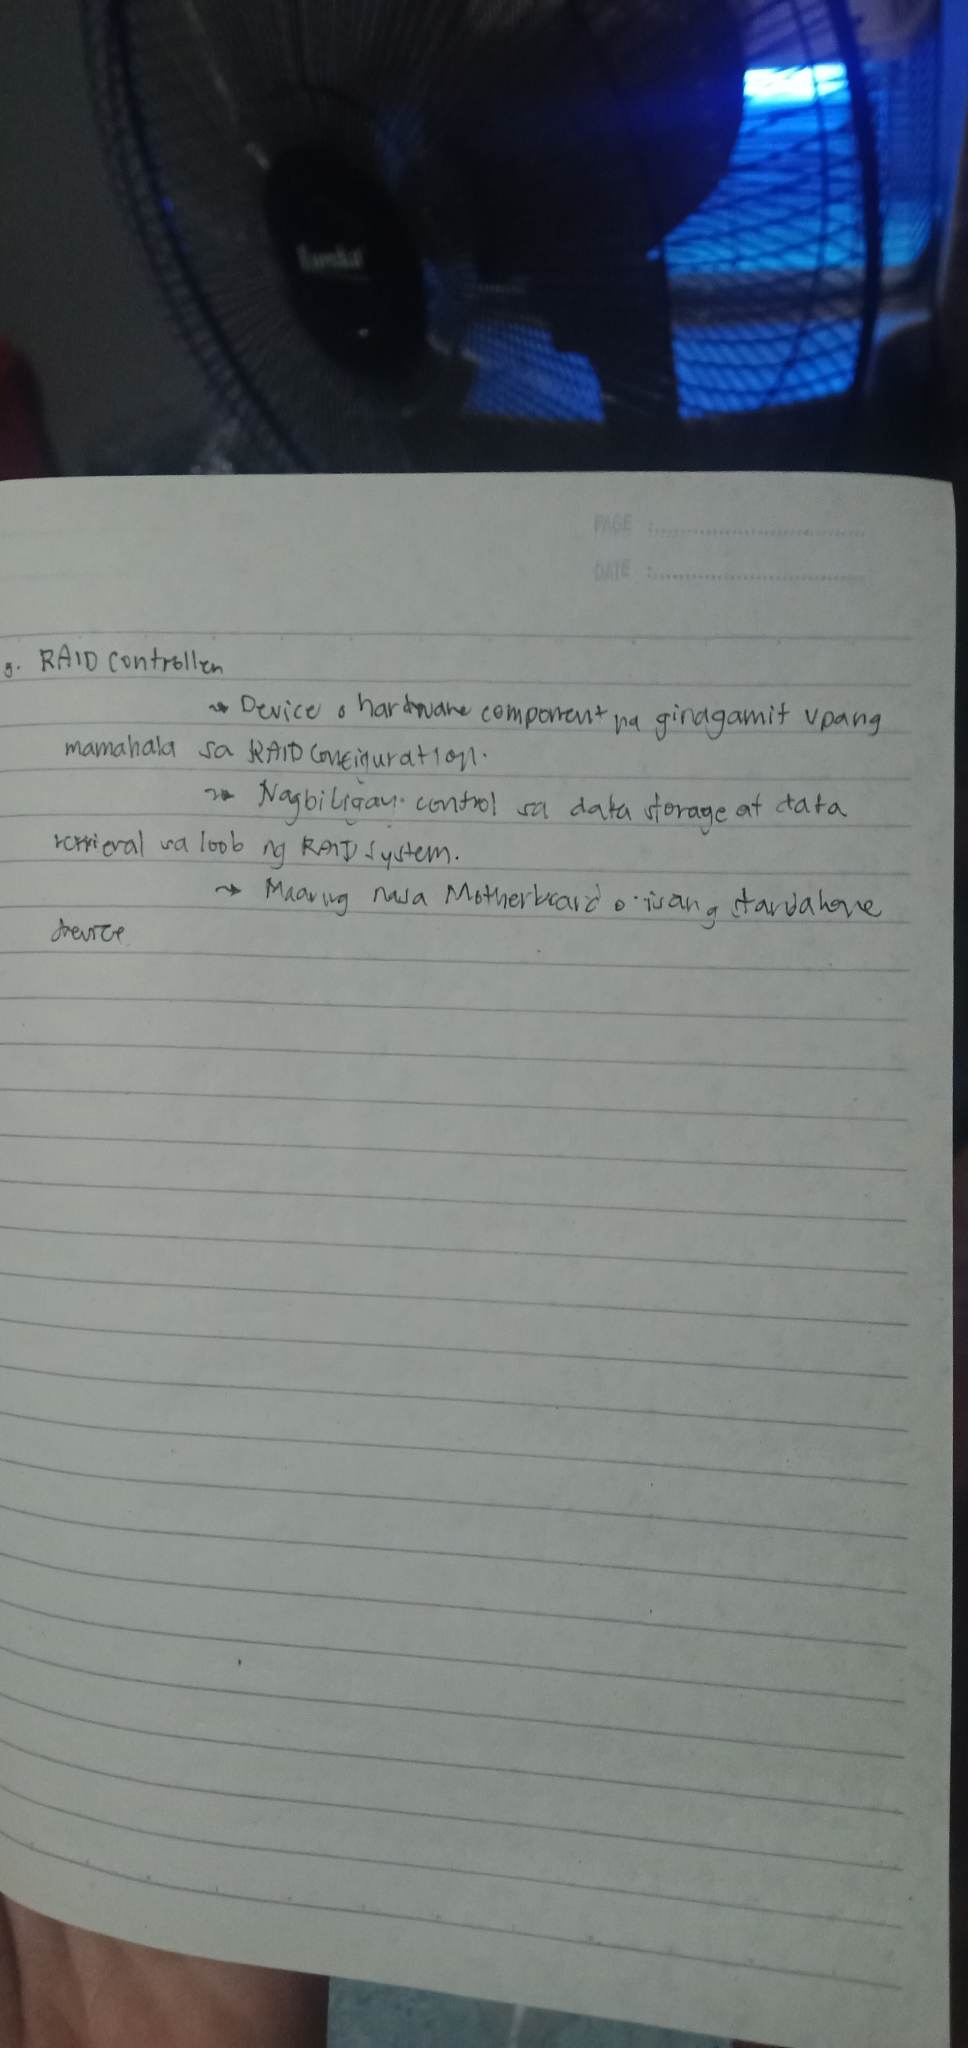 Eureka
PAGE :
DATE :
5. RAID Controller
→ Device o hardware component na ginagamit upang
mamahala sa RAID Configuration.
→ Nagbibigay control sa data storage at data
retrieval sa loob ng RAID system.
→ Maaring nasa Motherboard o isang standalone
device